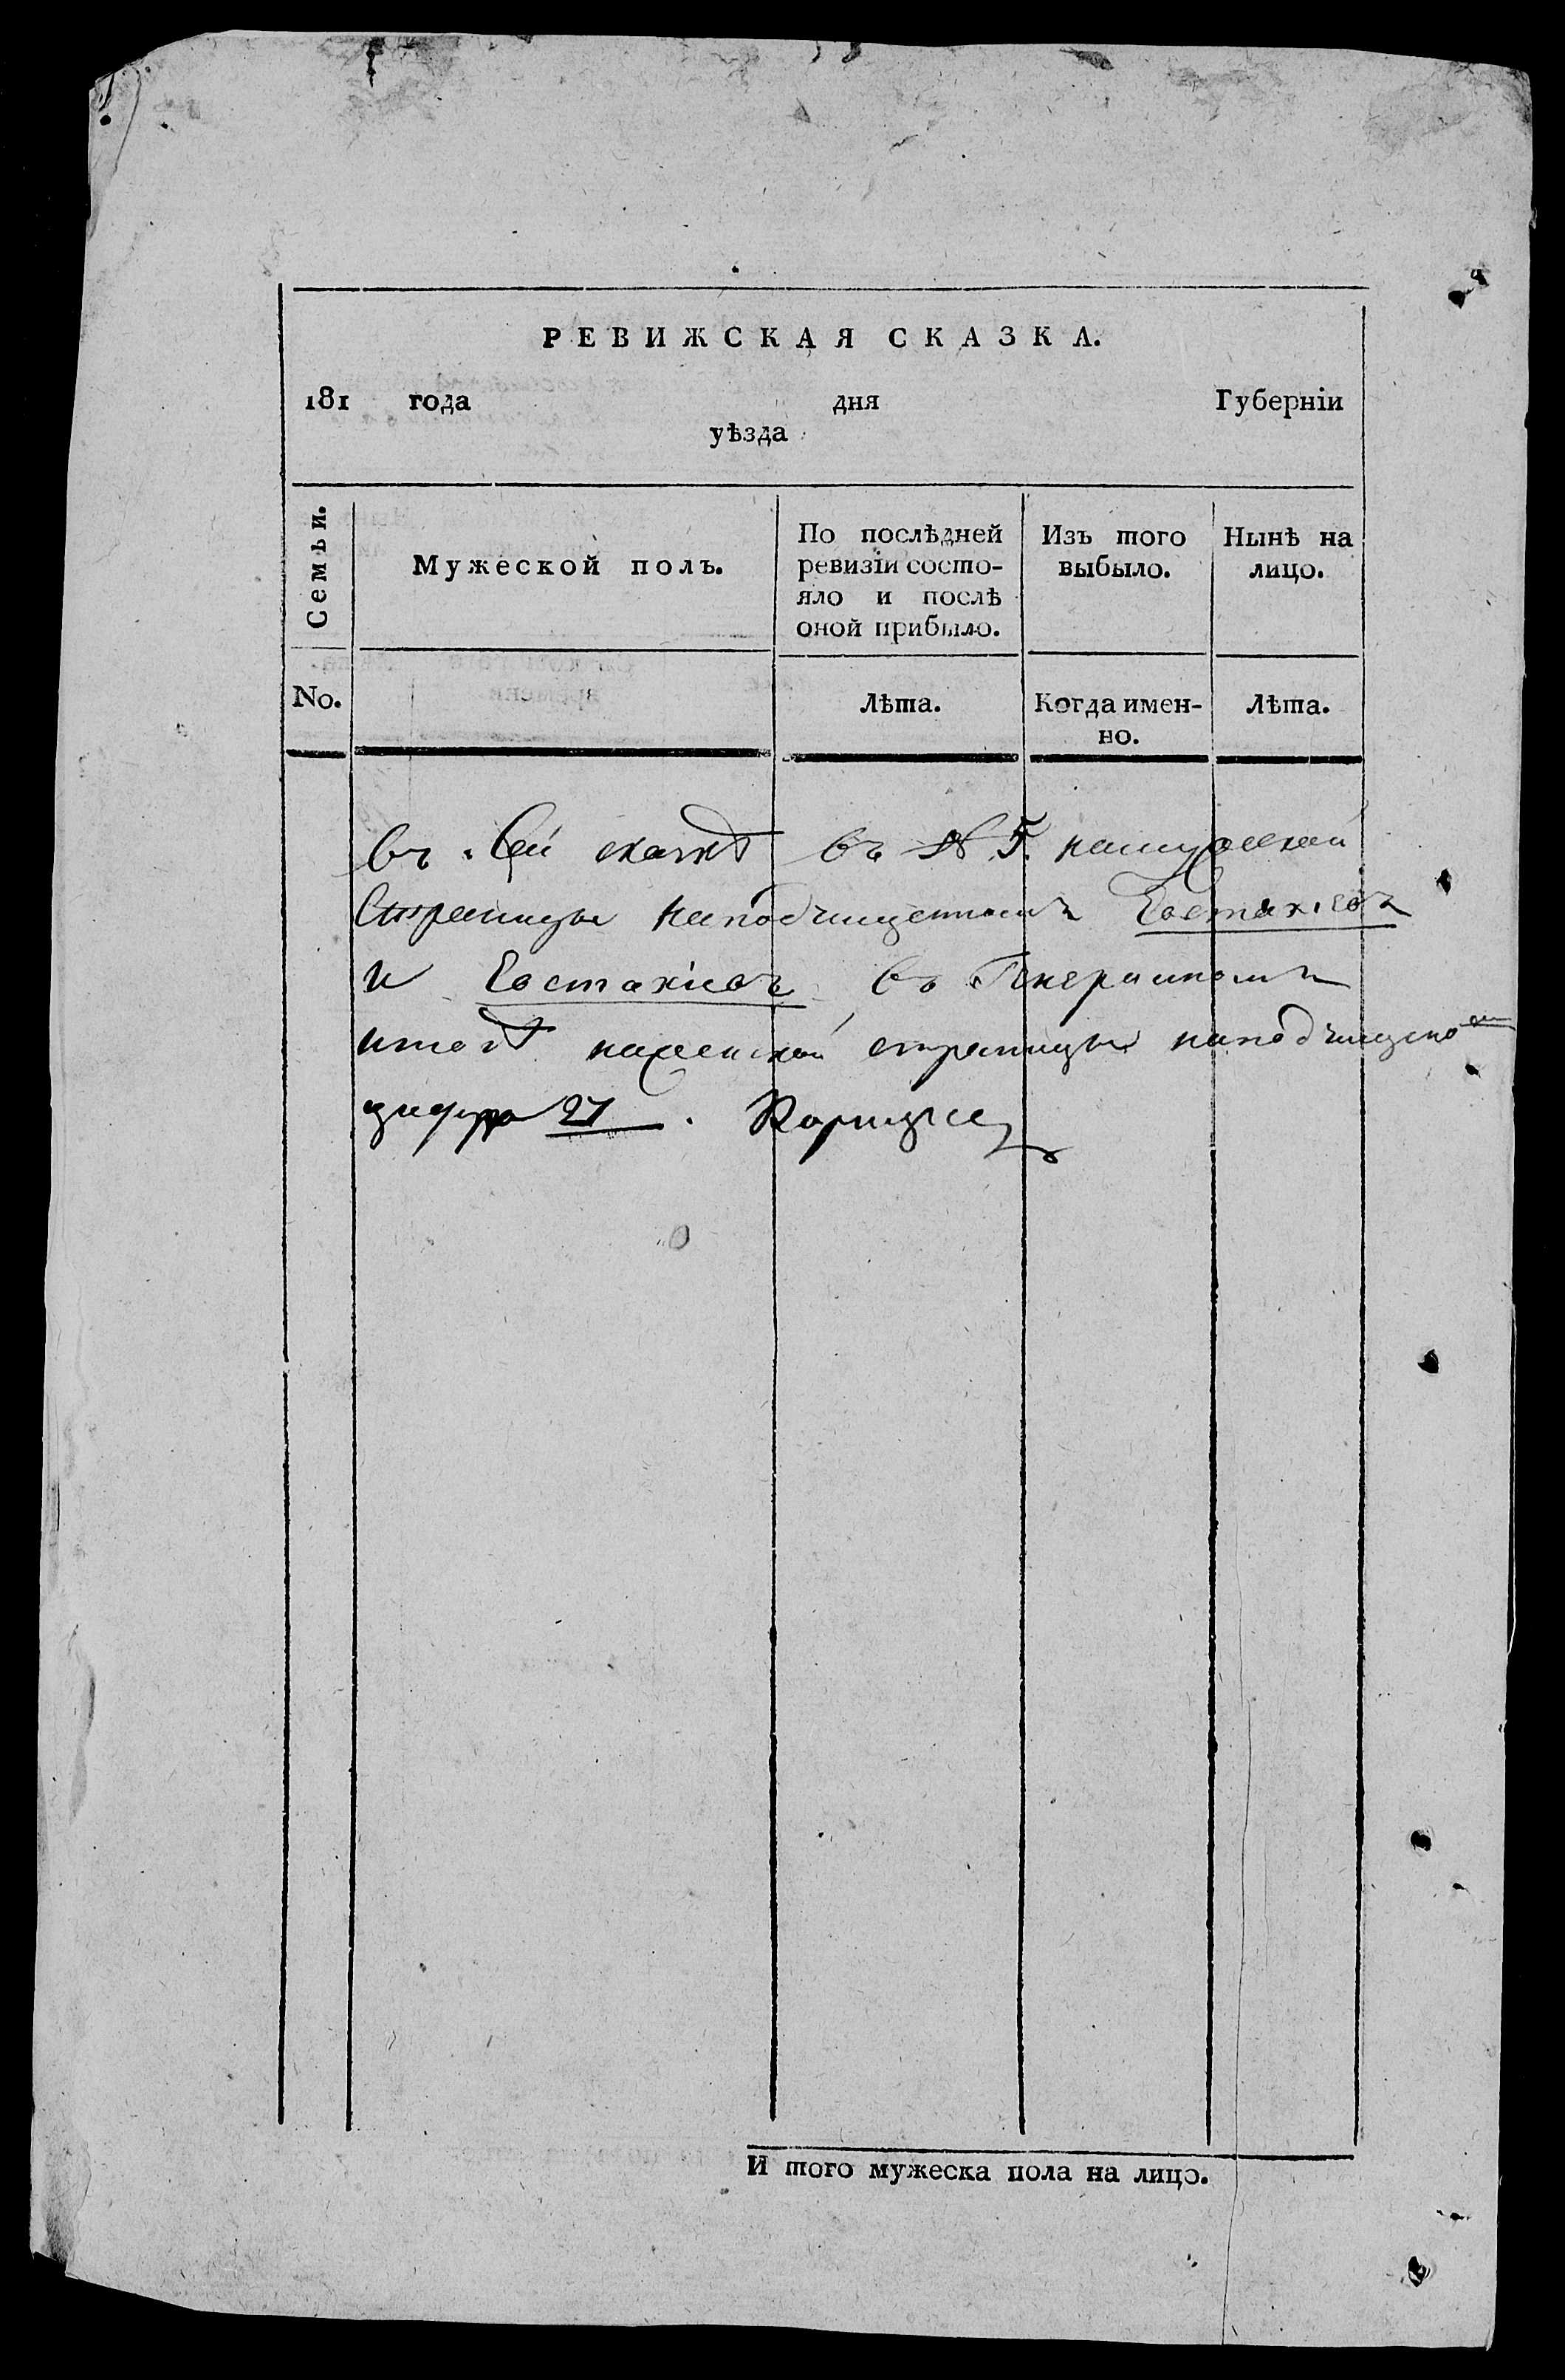 РЕВИЖСКАЯ СКАЗКА.
181 года дня Губерніи
уѣзда
Семьи.
Мужеской полъ.
По послѣдней
ревизіи состо-
яло и послѣ
оной прибыло.
Изъ того
выбыло.
Нынѣ на
лицо.
No.
Лѣта.
Когда имен-
но.
Лѣта.
въ сей скаскѣ въ № 5. намужской
страницы наподчищенномъ Евстахіевъ
и Евстахіевъ въ Генералномъ
итогѣ наженской страницы наподчищено
цифра 27.
И того мужеска пола на лицо.